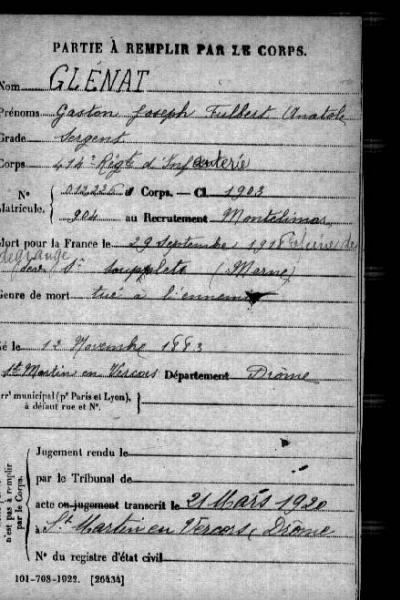 PARTIE À REMPLIR PAR LE CORPS.
Nom GLÉNAT
Prénoms Gaston Joseph Fulbert Anatole
Grade Sergent
Corps 414e Régt d'Infanterie
N° 012226 au Corps. — Cl. 1903
Matricule. 904 au Recrutement Montélimar
Mort pour la France le 29 Septembre 1918 ferme de
Genre de mort tué à l'ennemi
Né le 12 Novembre 1883
St Martin en Vercors Département Drôme
arrt municipal (pr Paris et Lyon),
à défaut rue et N°.
n'est pas à remplir
par le Corps.
Jugement rendu le
par le Tribunal de
acte ou jugement transcrit le 21 Mars 1920
à St Martin en Vercors, Drôme
N° du registre d'état civil
101-708-1922. [26434]